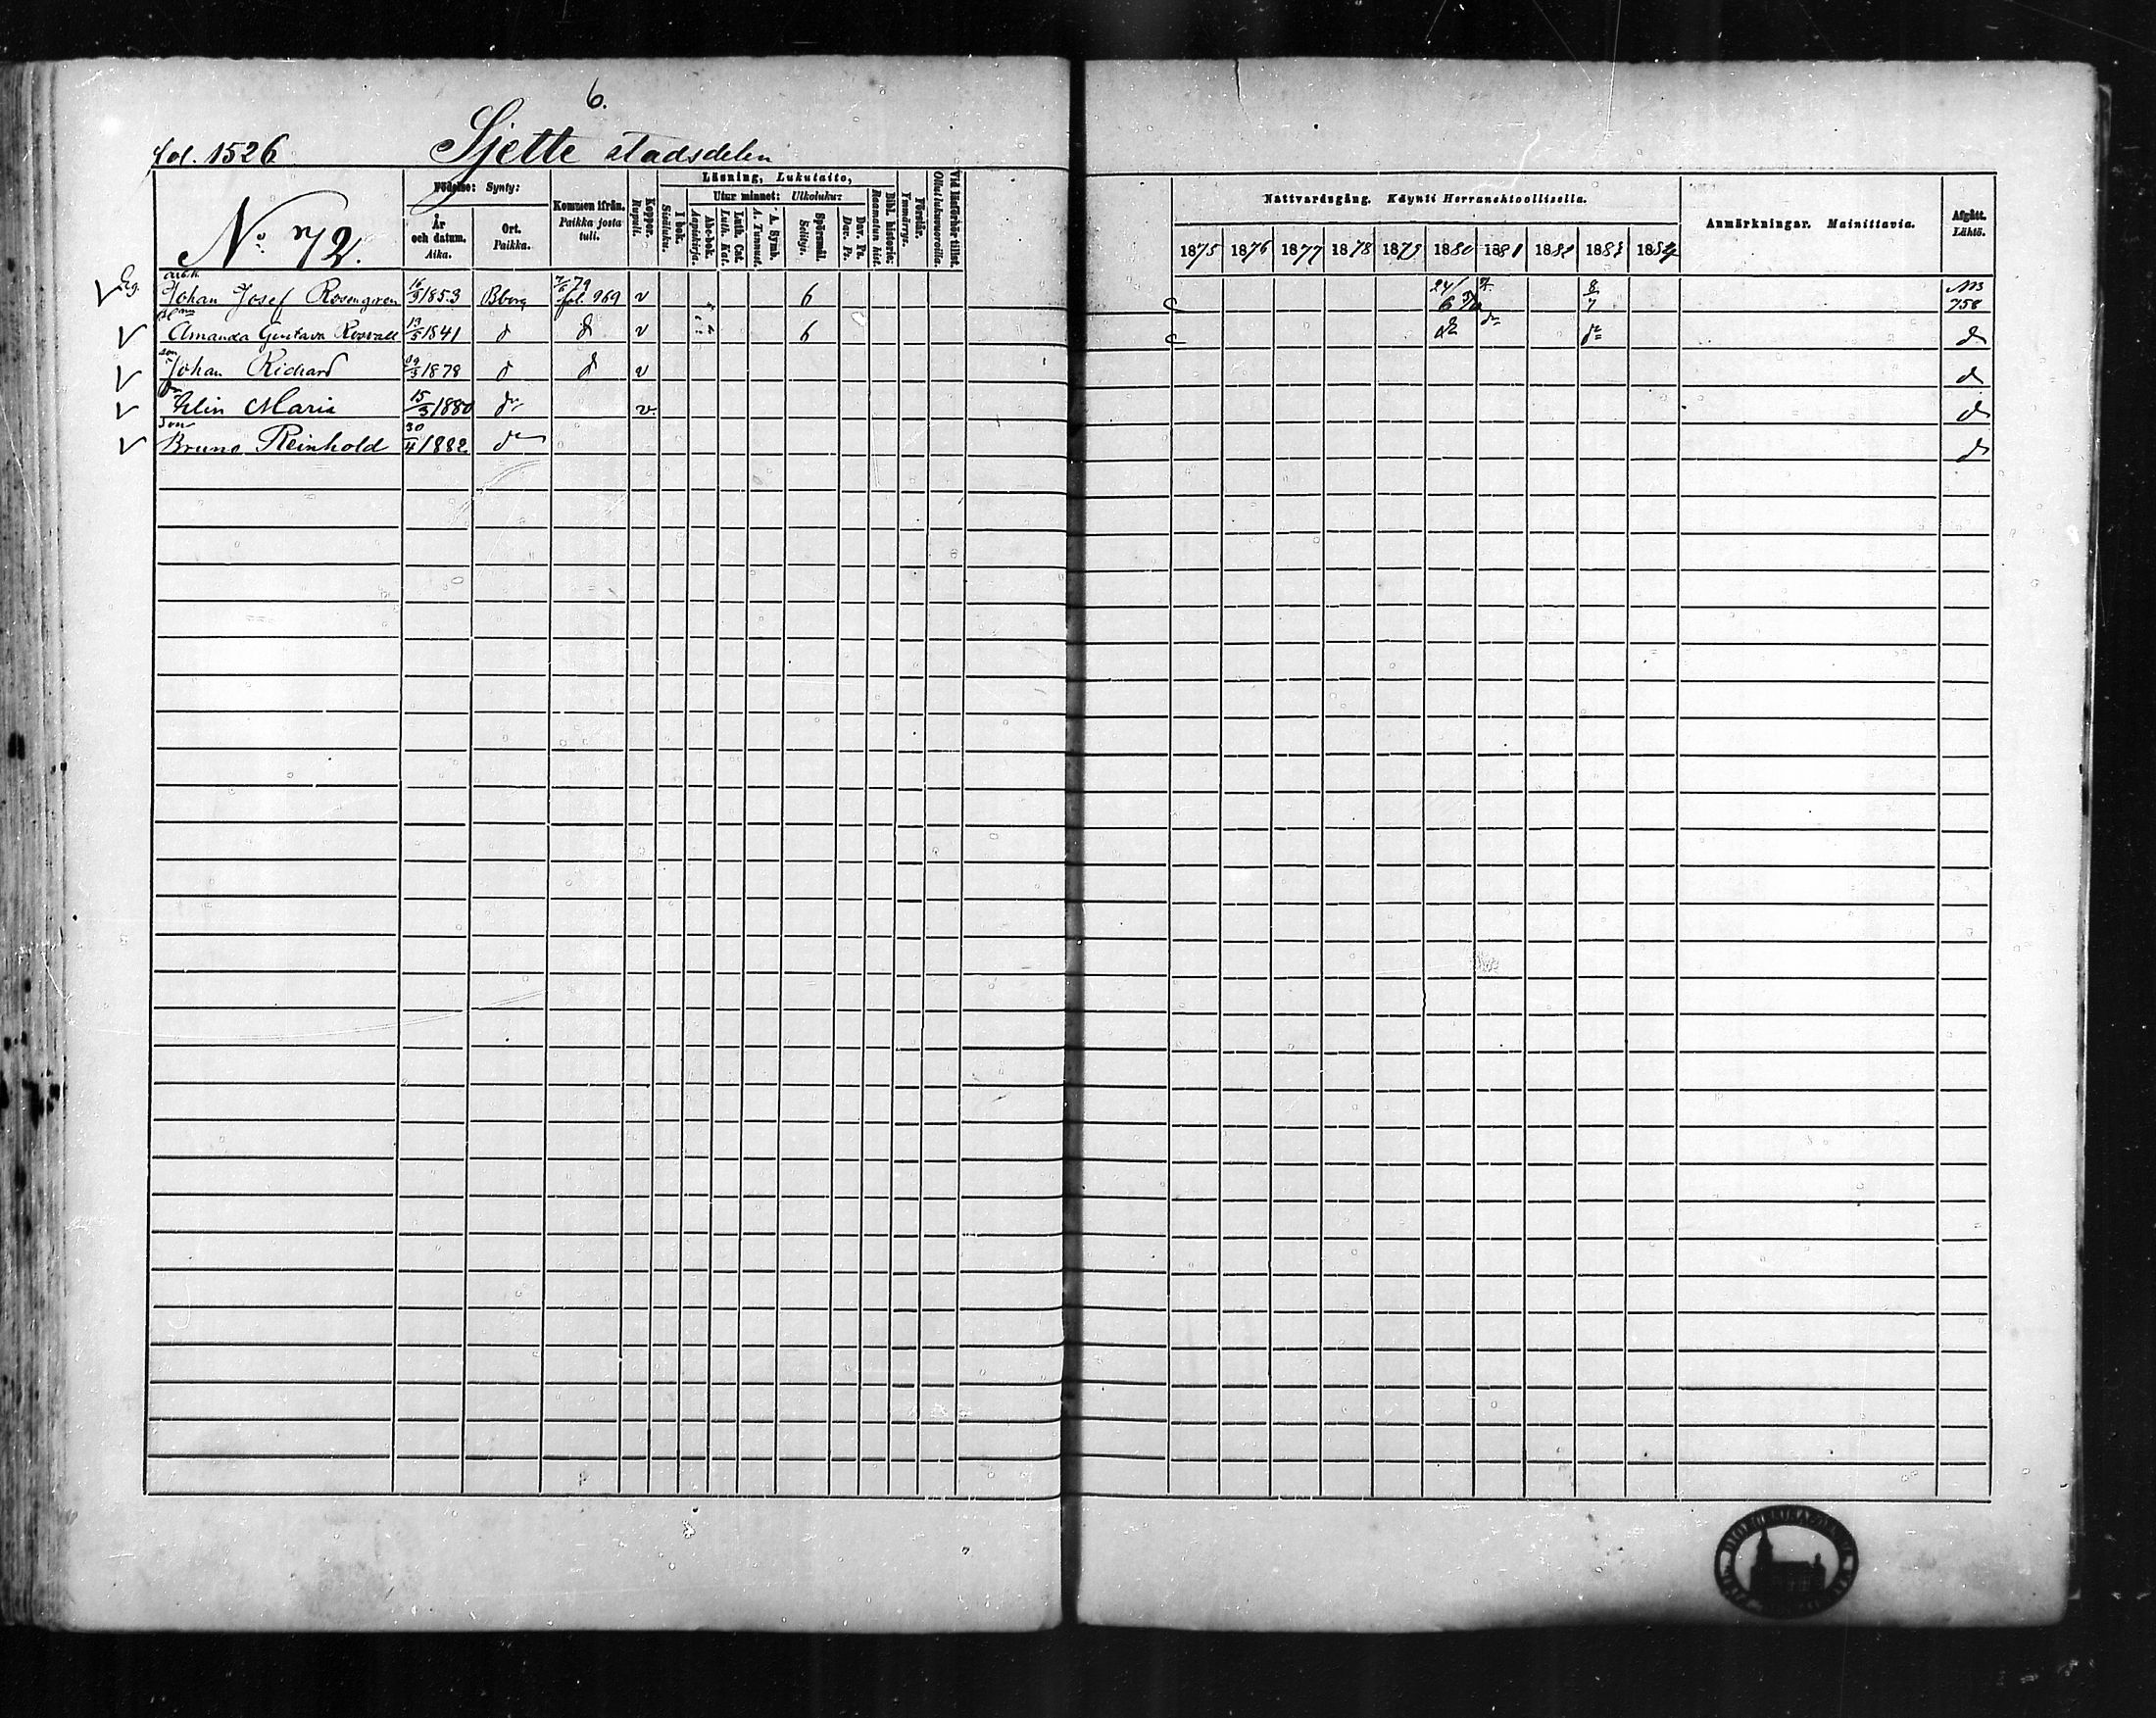 6.
fol. 1526 Sjette stadsdelen
No 72.
Födelse: Synty:
År och datum. Aika.
Ort. Paikka.
Kommen ifrån. Paikka josta tuli.
Koppor. Rupuli.
Läsning, Lukutaito,
I bok. Sisäluku.
Utur minnet: Ulkoluku:
Abc-bok. Aapiskirja.
Luth. Cat. Luth. Kat.
A. Symb. A. Tunnust.
Spörsmål. Selitys.
Dav. Ps. Dav. Ps.
Bibl. historie. Raamatun hist.
Förstår. Ymmärrys.
Vid läsförhör tillst. Ollut lukuvuoroilla.
Nattvardsgång. Käynti Herranehtoollisella.
1875 1876 1877 1878 1879 1880 1881 1882 1883 1884
Anmärkningar. Mainittavia.
Afgått. Lähtö.
Johan Josef Rosengren 16/3 1853 Bborg 7/6 79 fol. 969 v 6 8/7 758
Amanda Gustava Rosvall 19/5 1841 d d v 6 do do do d
son Johan Richard 29/3 1878 d d v d
Elin Maria 15/3 1880 do v. d
son Bruno Reinhold 30/4 1882 do d